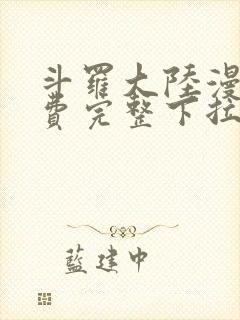 斗罗大陸漫
費完整下拉
藍建中